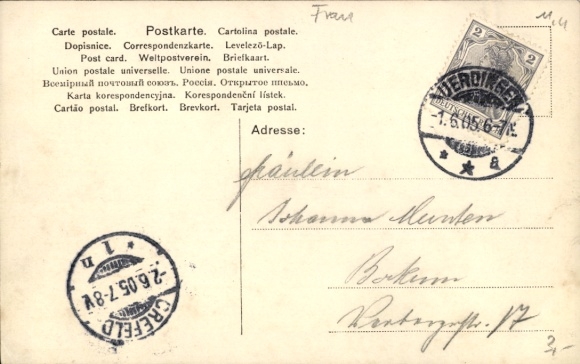 Frau
Carte postale. Postkarte. Cartolina postale.
Dopisnice. Correspondenzkarte. Levelező-Lap.
Post card. Weltpostverein. Briefkaart.
Union postale universelle. Unione postale universale.
Всемірный почтовый союзъ. Россія. Открытое письмо.
Karta korespondencyjna. Korespondenční lístek.
Cartão postal. Brefkort. Brevkort. Tarjeta postal.
2 2
UERDINGEN
1.6.05. 6-7N.
* * a
Adresse:
Fräulein
Johanna Munten
Bockum
17
CREFELD
2.6.05. 7-8V
* 1 n